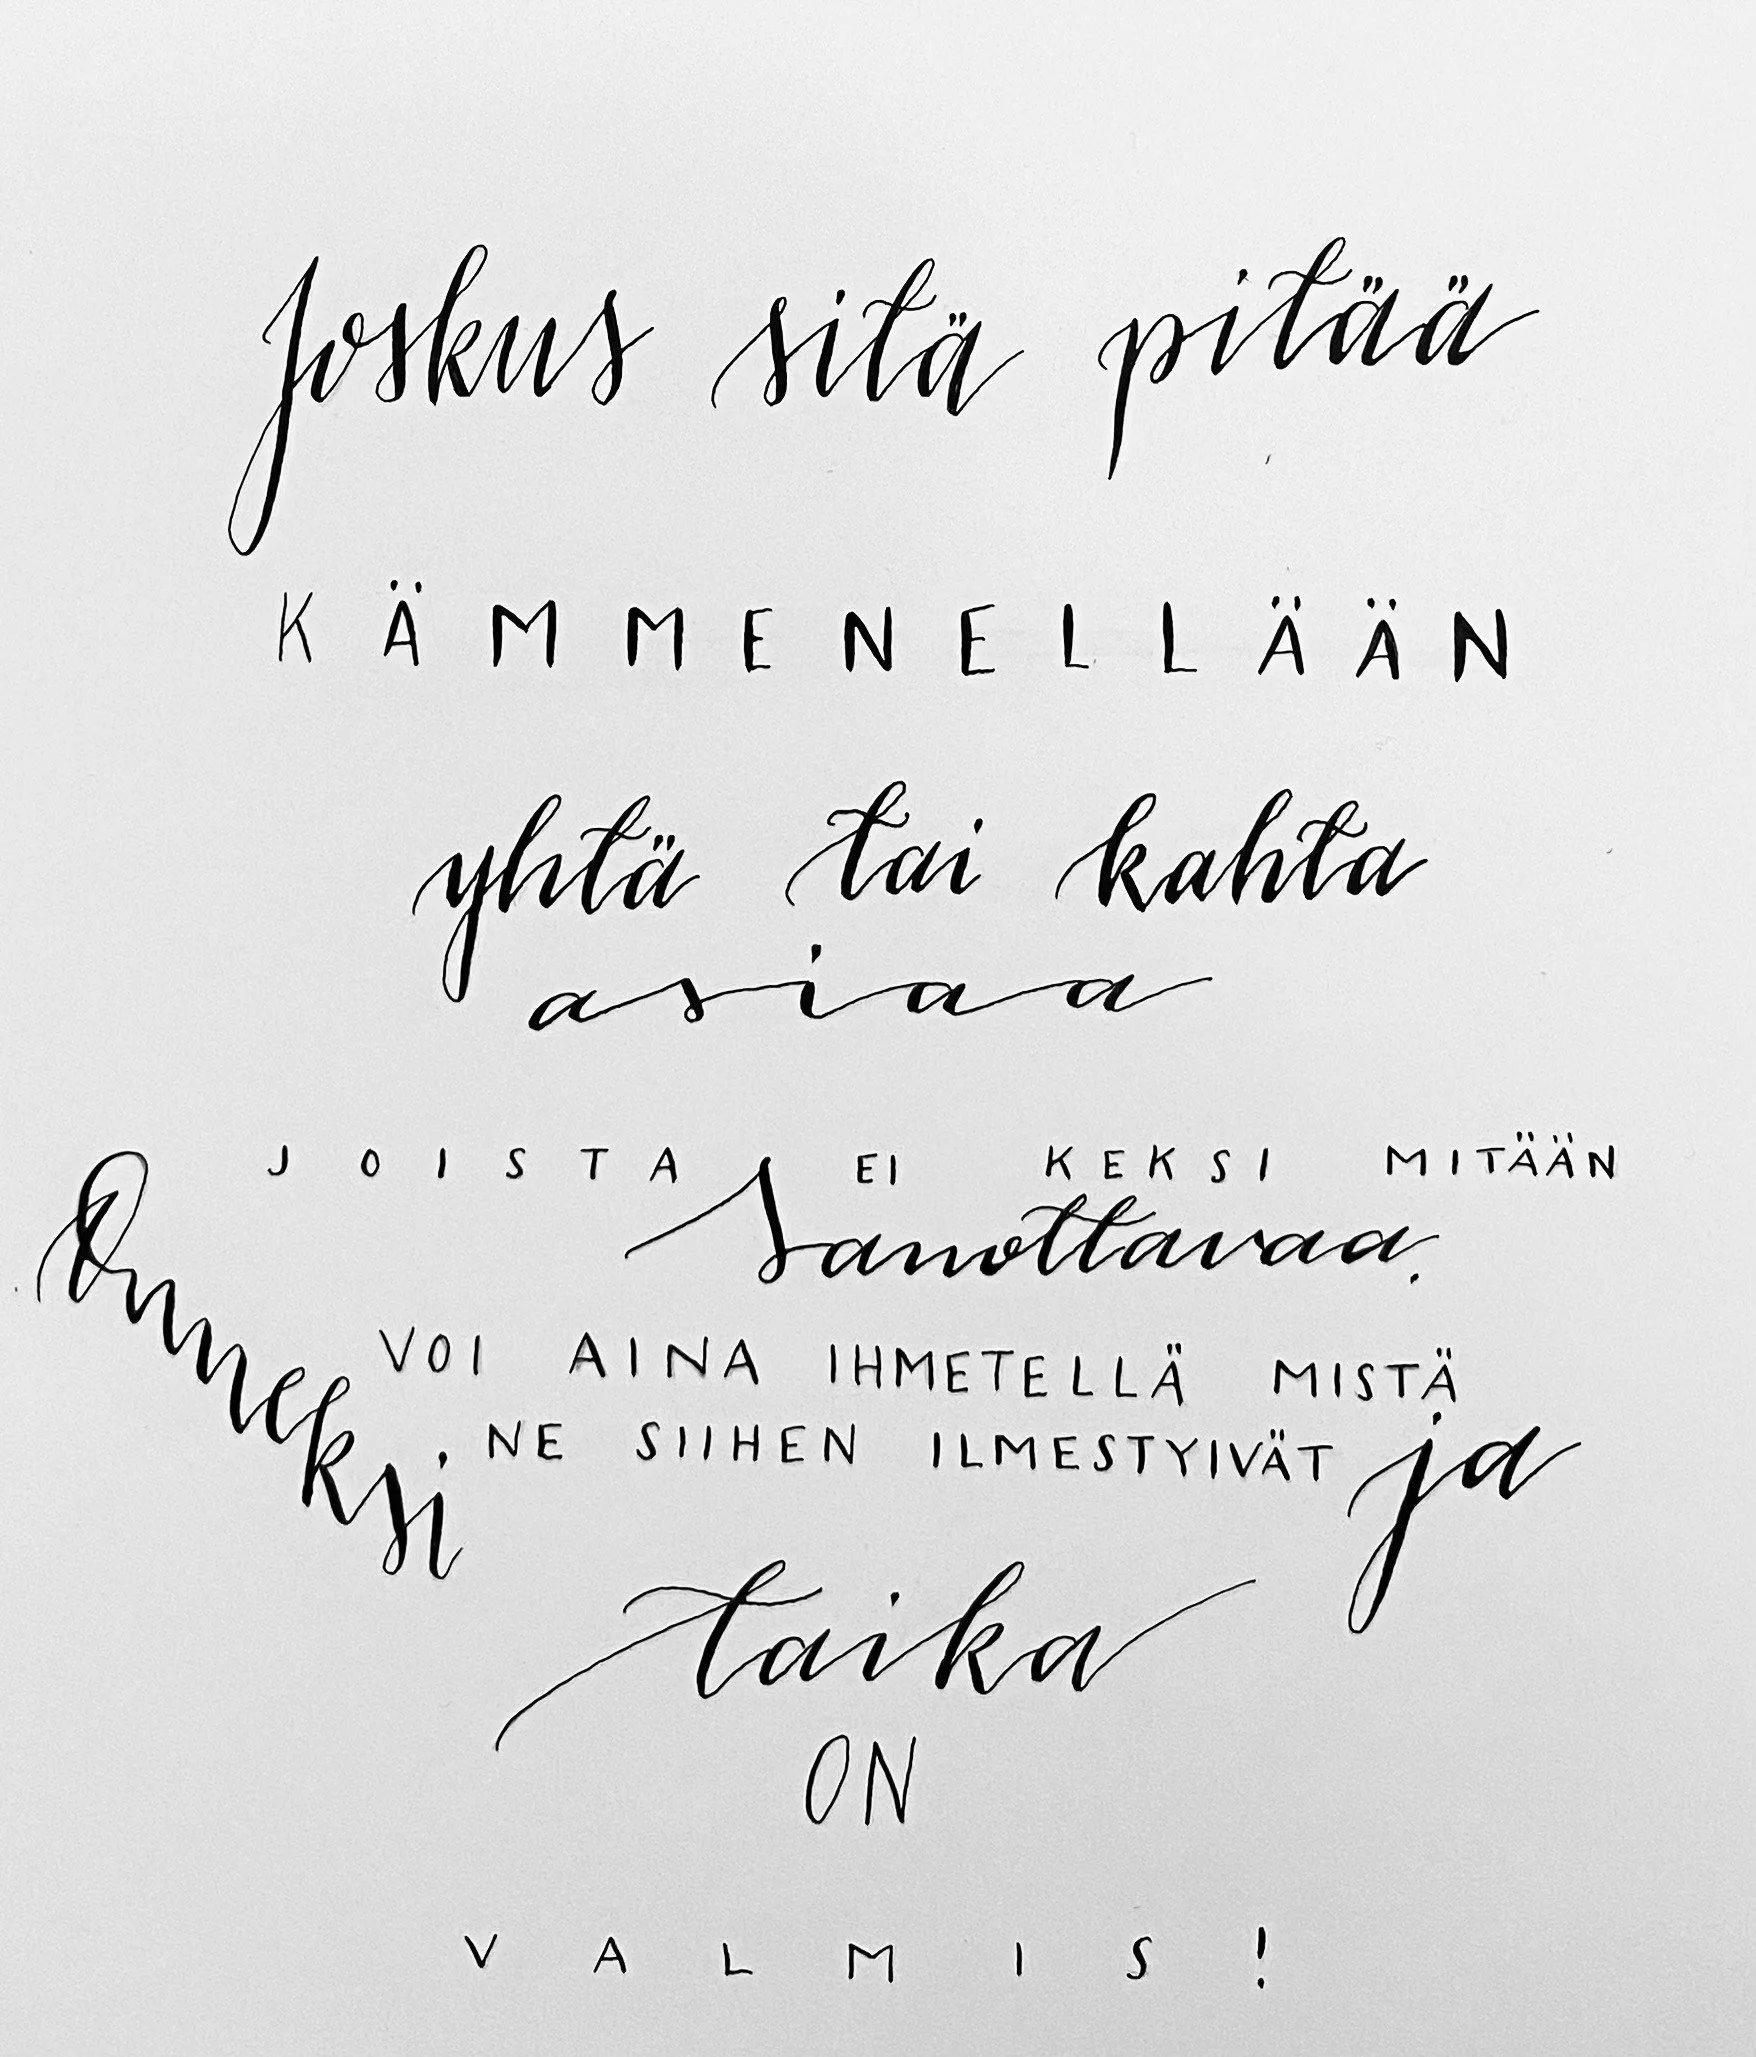 Joskus sitä pitää
KÄMMENELLÄÄN
yhtä tai kahta
asiaa
JOISTA EI KEKSI MITÄÄN
sanottavaa.
Onneksi
VOI AINA IHMETELLÄ MISTÄ
NE SIIHEN ILMESTYIVÄT ja
taika
ON
VALMIS!